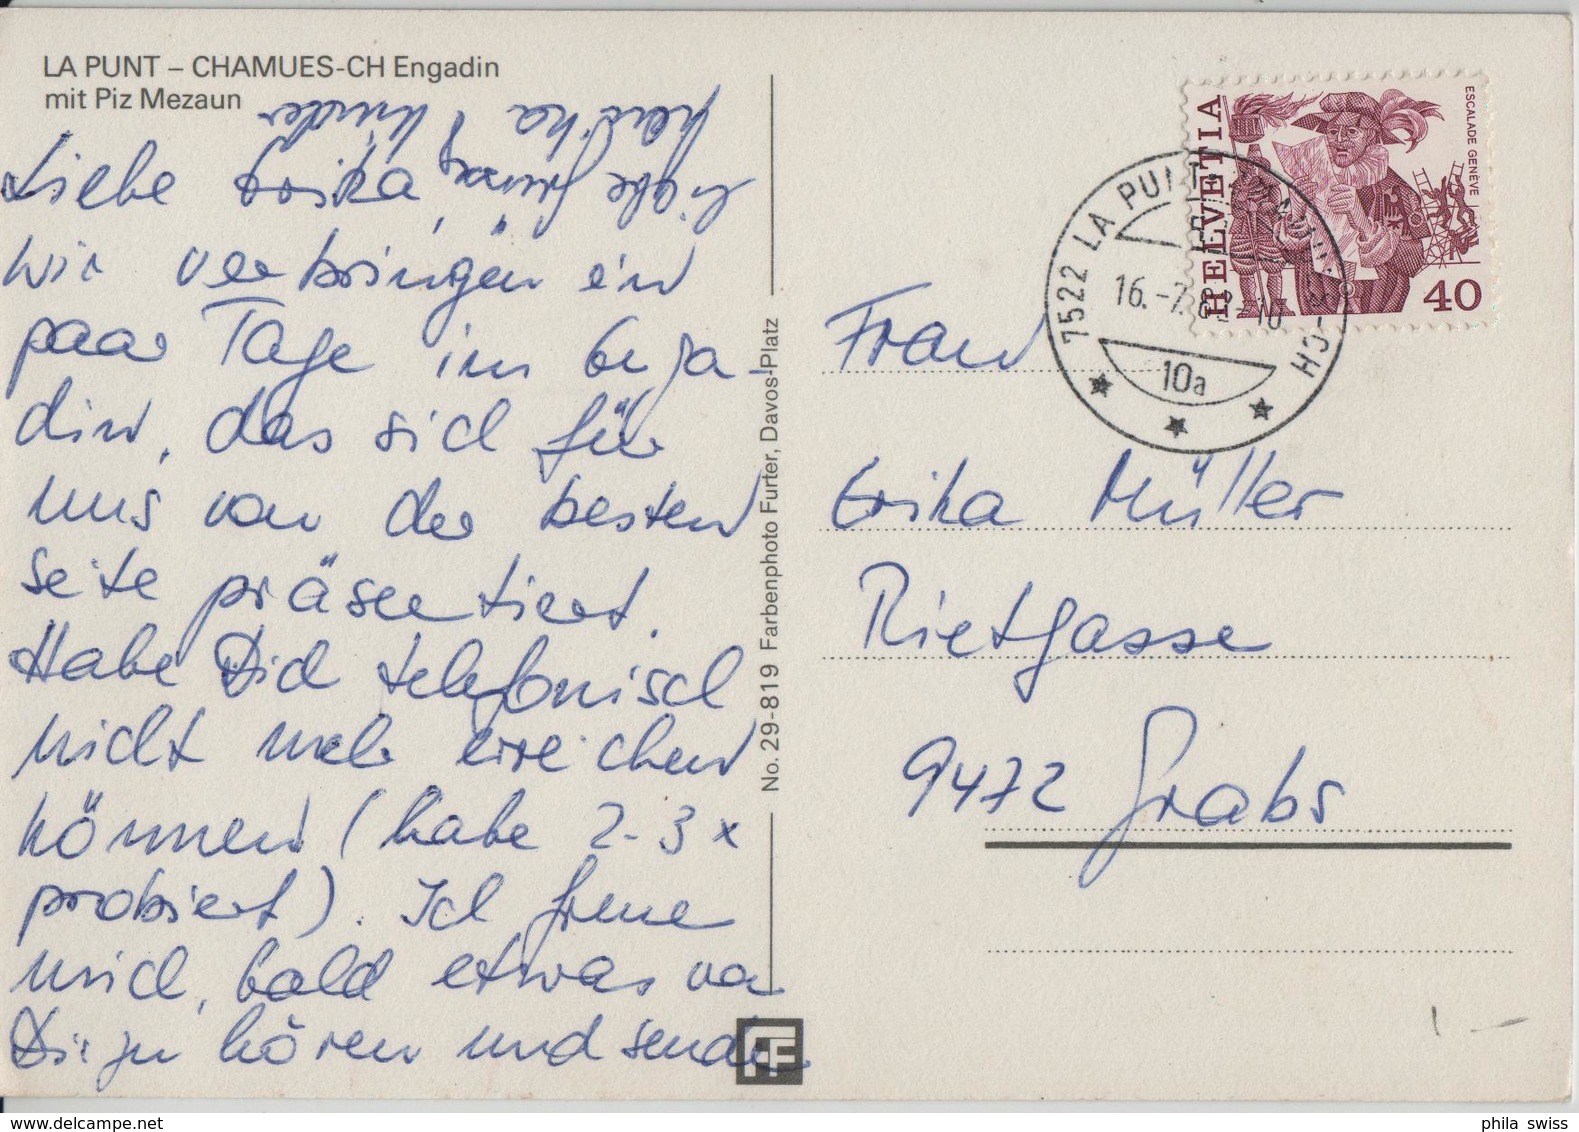 LA PUNT – CHAMUES-CH Engadin
mit Piz Mezaun
Liebe Erika,
wir verbringen ein
paar Tage im Enga-
din, das sich für
uns von der besten
Seite präsentiert.
Habe Dich telefonisch
nicht mehr erreichen
können (habe 2-3 x
probiert). Ich freue
mich, bald etwas von
Dir zu hören und sende
liebe Grüsse
Kinder
No. 29-819 Farbenphoto Furter, Davos-Platz
FF
HELVETIA
ESCALADE GENÈVE
40
7522 LA PUNT-CHAMUES-CH
16.-7.8
-10
10a
Frau
Erika Müller
Rietgasse
9472 Grabs
phila swiss